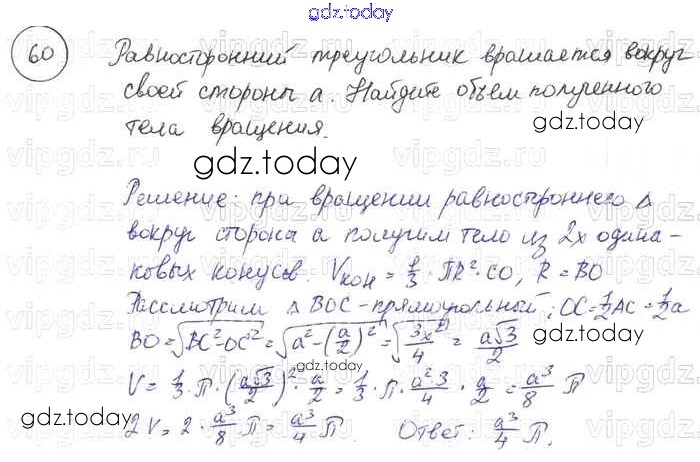 gdz.today
60 Равносторонний треугольник вращается вокруг
своей стороны a. Найдите объем полученного
тела вращения.
gdz.today
gdz.today
Решение: при вращении равностороннего Δ
вокруг стороны a получим тело из 2х одина-
ковых конусов. Vкон = 1/3 · ПR²·CO, R = BO
gdz.today
Рассмотрим Δ BOC - прямоугольный; OC = 1/2 AC = 1/2 a
BO = √(BC² - OC²) = √(a² - (a/2)²) = √(3x²/4) = a√3/2
gdz.today
V = 1/3 · П · (a√3/2)² · a/2 = 1/3 · П · a²·3/4 · a/2 = a³/8 П
gdz.today
2V = 2 · a³/8 П = a³/4 П. Ответ: a³/4 П.
gdz.today